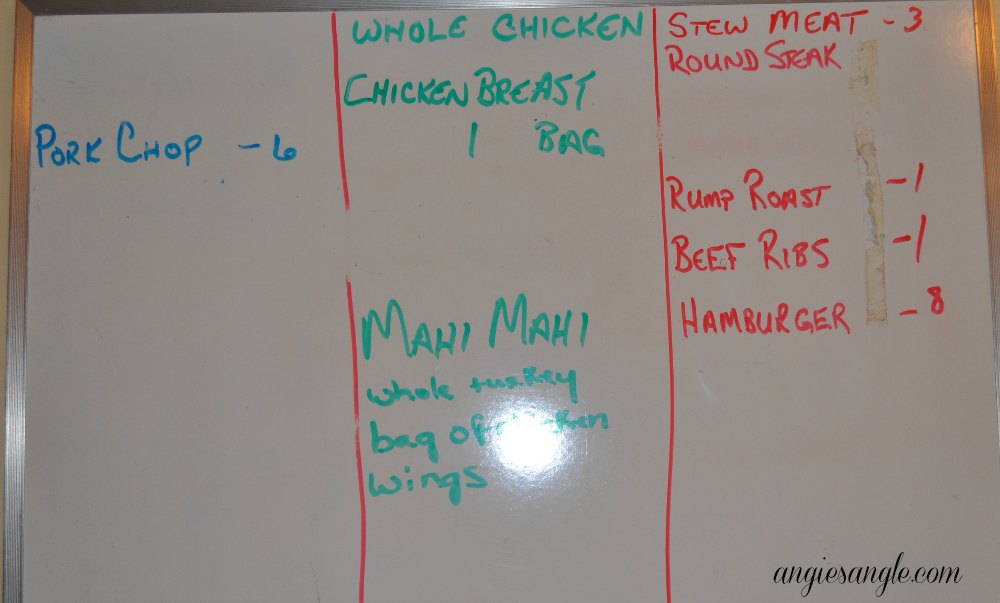 PORK CHOP - 6
WHOLE CHICKEN
CHICKEN BREAST
1 BAG
MAHI MAHI
whole turkey
bag of chicken
wings
STEW MEAT - 3
ROUND STEAK
RUMP ROAST - 1
BEEF RIBS - 1
HAMBURGER - 8
angiesangle.com